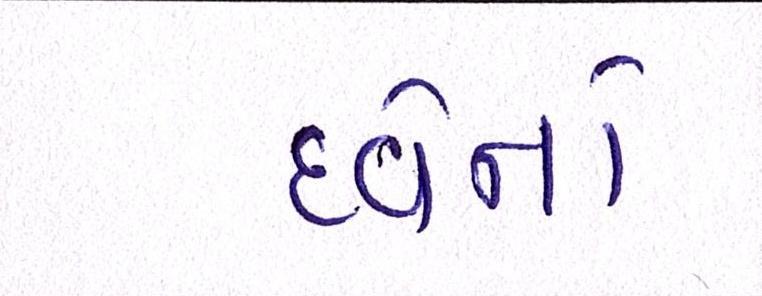 દવેનો